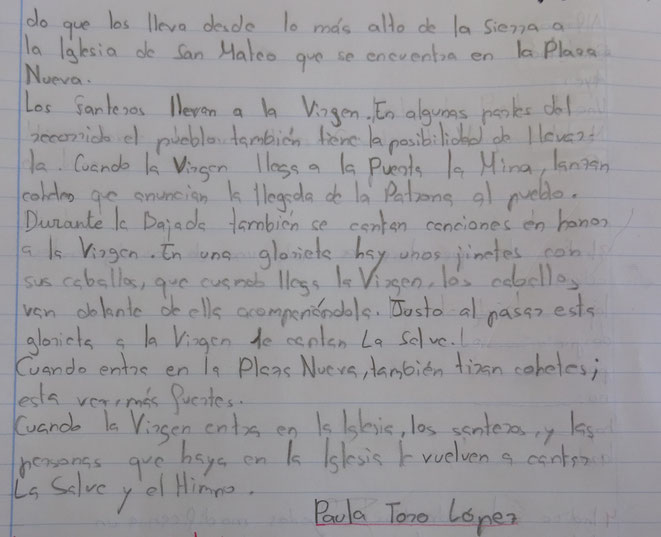 do que los lleva desde lo más alto de la Sierra a
la Iglesia de San Mateo que se encuentra en la Plaza
Nueva.
Los Santeros llevan a la Virgen. En algunas partes del
recorrido el pueblo también tiene la posibilidad de llevar
la. Cuando la Virgen llega a la Puerta la Mina, lanzan
que anuncian la llegada de la Patrona al pueblo.
Durante la Bajada también se cantan canciones en honor
a la Virgen. En una glorieta hay unos jinetes con
sus caballos, que cuando llega la Virgen, los caballos
van delante de ella acompañándola. Justo al pasar esta
glorieta a la Virgen le cantan La Salve.
Cuando entra en la Plaza Nueva, también tiran cohetes;
esta vez, más fuertes.
Cuando la Virgen entra en la Iglesia, los santeros, y las
personas que haya en la Iglesia le vuelven a cantar
La Salve y el Himno.
Paula Toro López